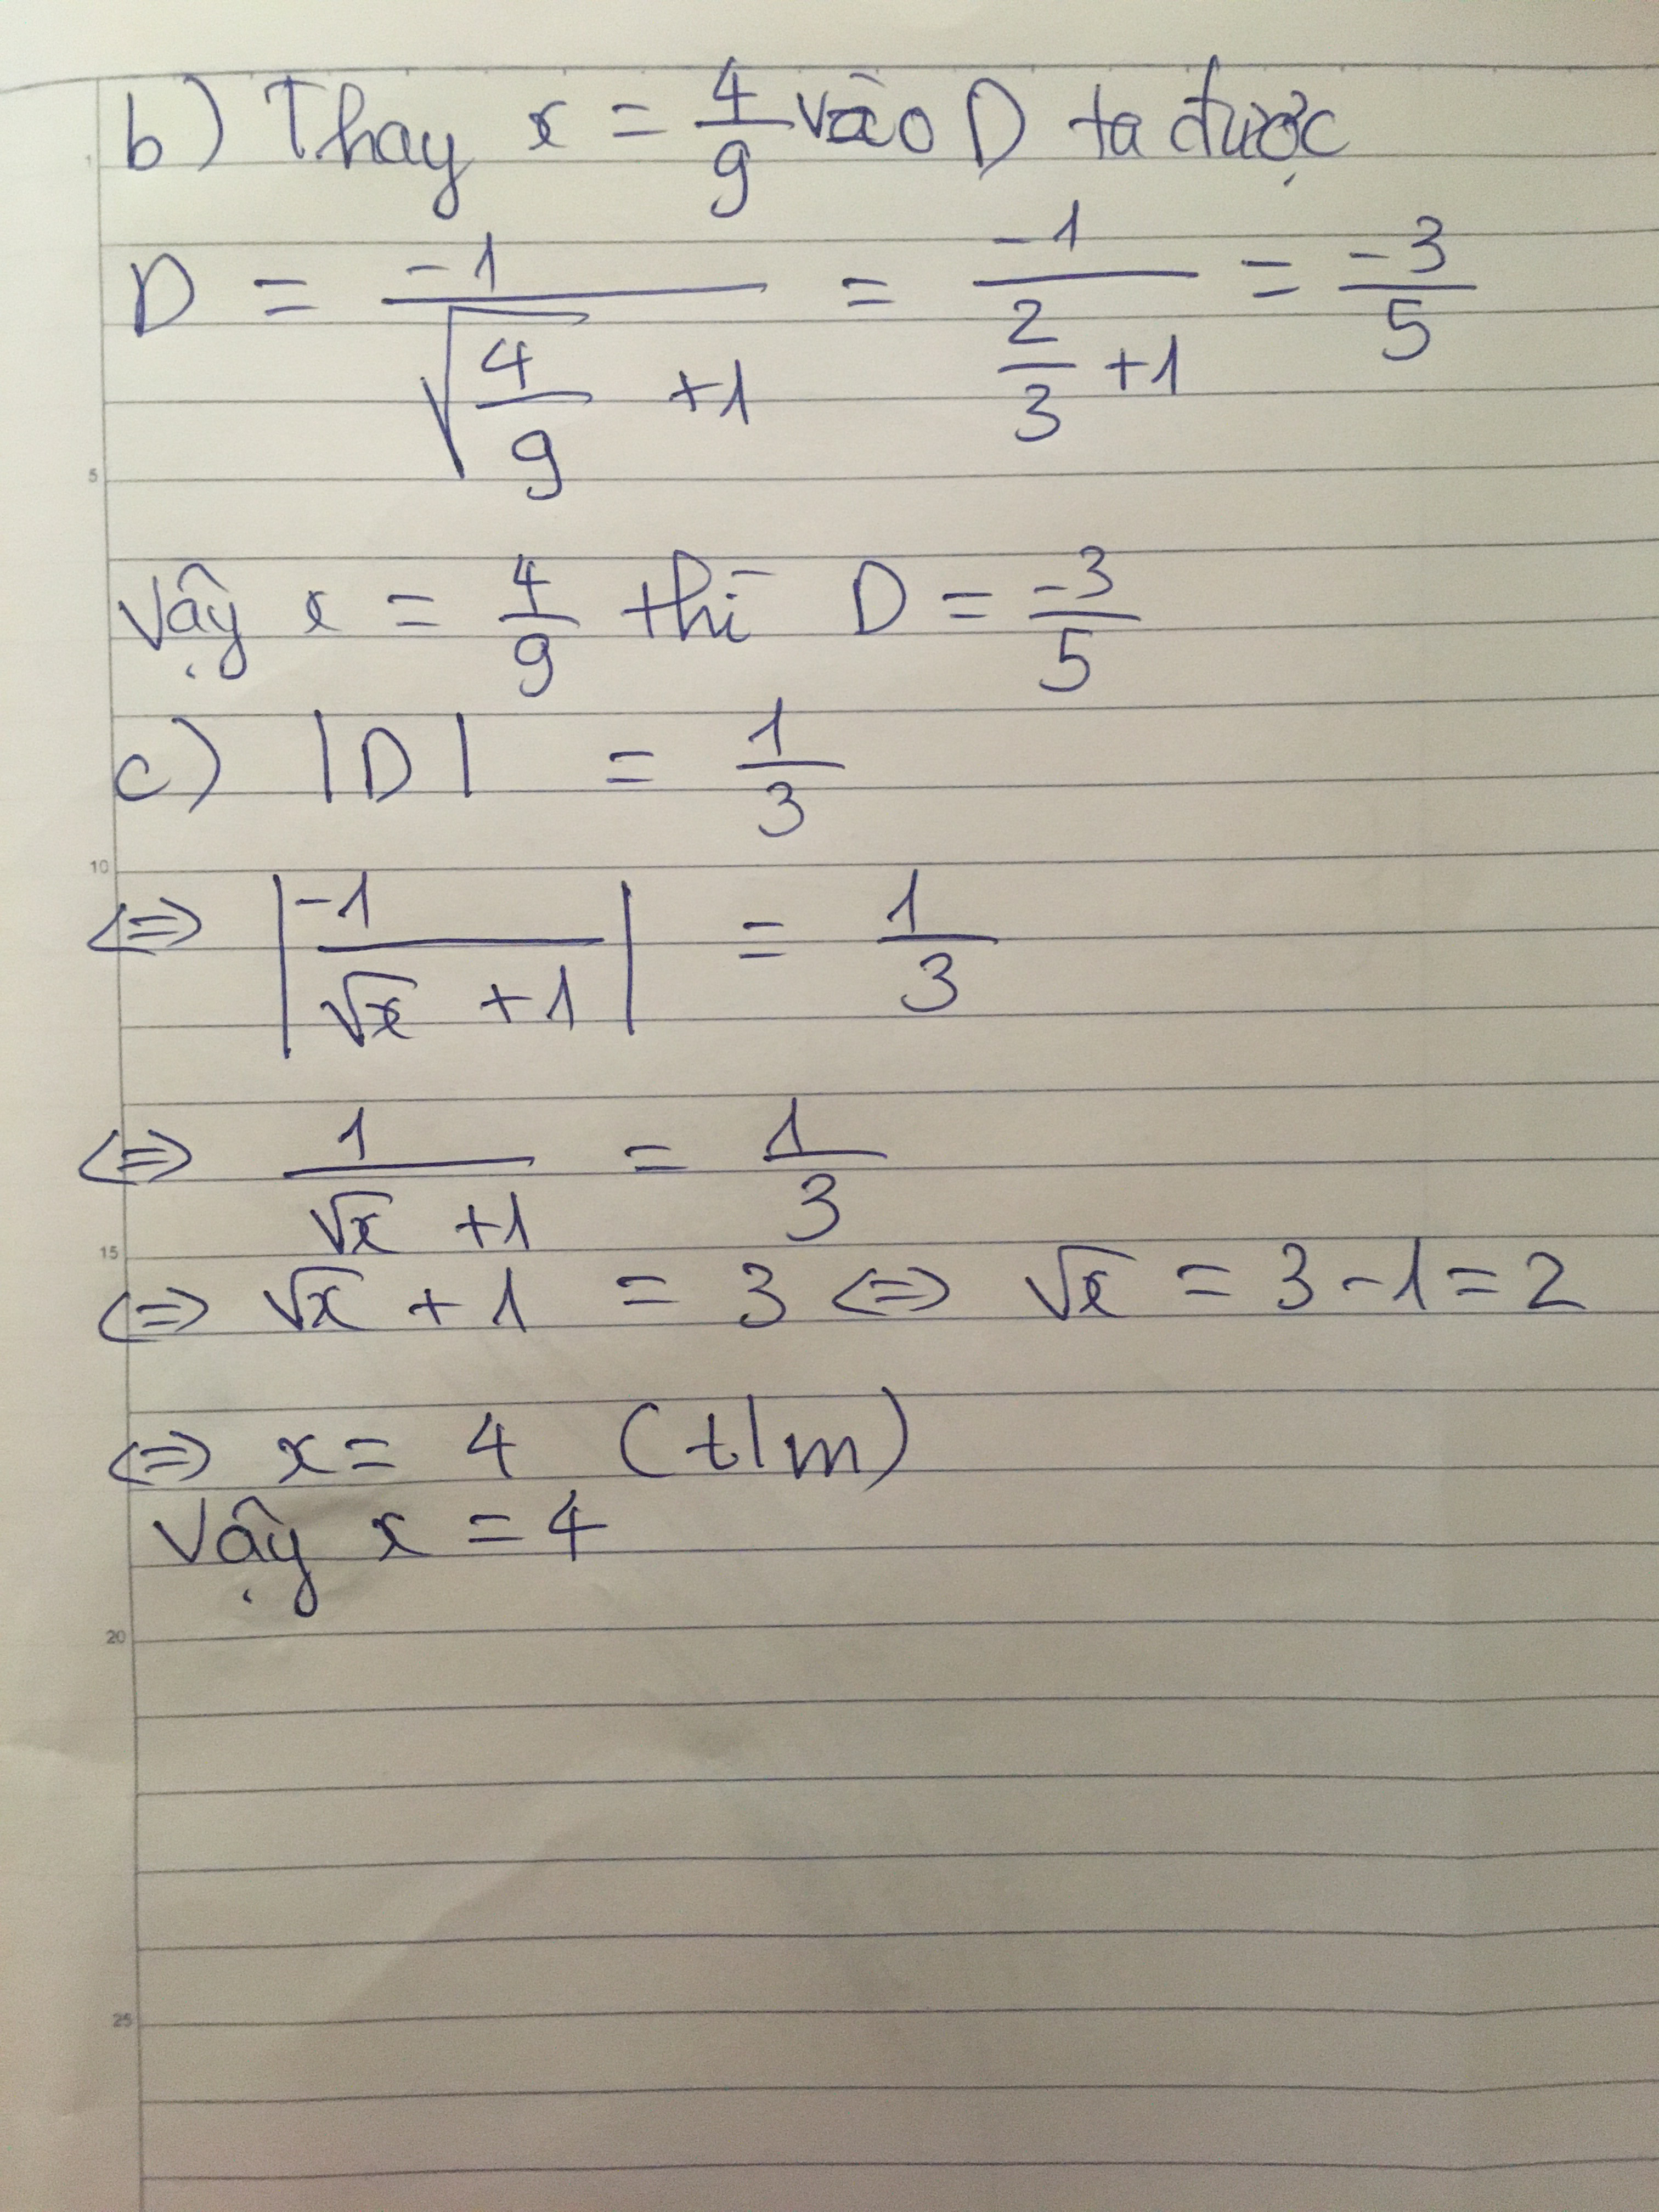 b) Thay x = 4/9 vào D ta được
D = -1/(√(4/9) +1) = -1/(2/3 +1) = -3/5
Vậy x = 4/9 thì D = -3/5
c) |D| = 1/3
⇔ |-1/(√x +1)| = 1/3
⇔ 1/(√x +1) = 1/3
⇔ √x + 1 = 3 ⇔ √x = 3-1=2
⇔ x = 4 (t/m)
Vậy x = 4
1
5
10
15
20
25